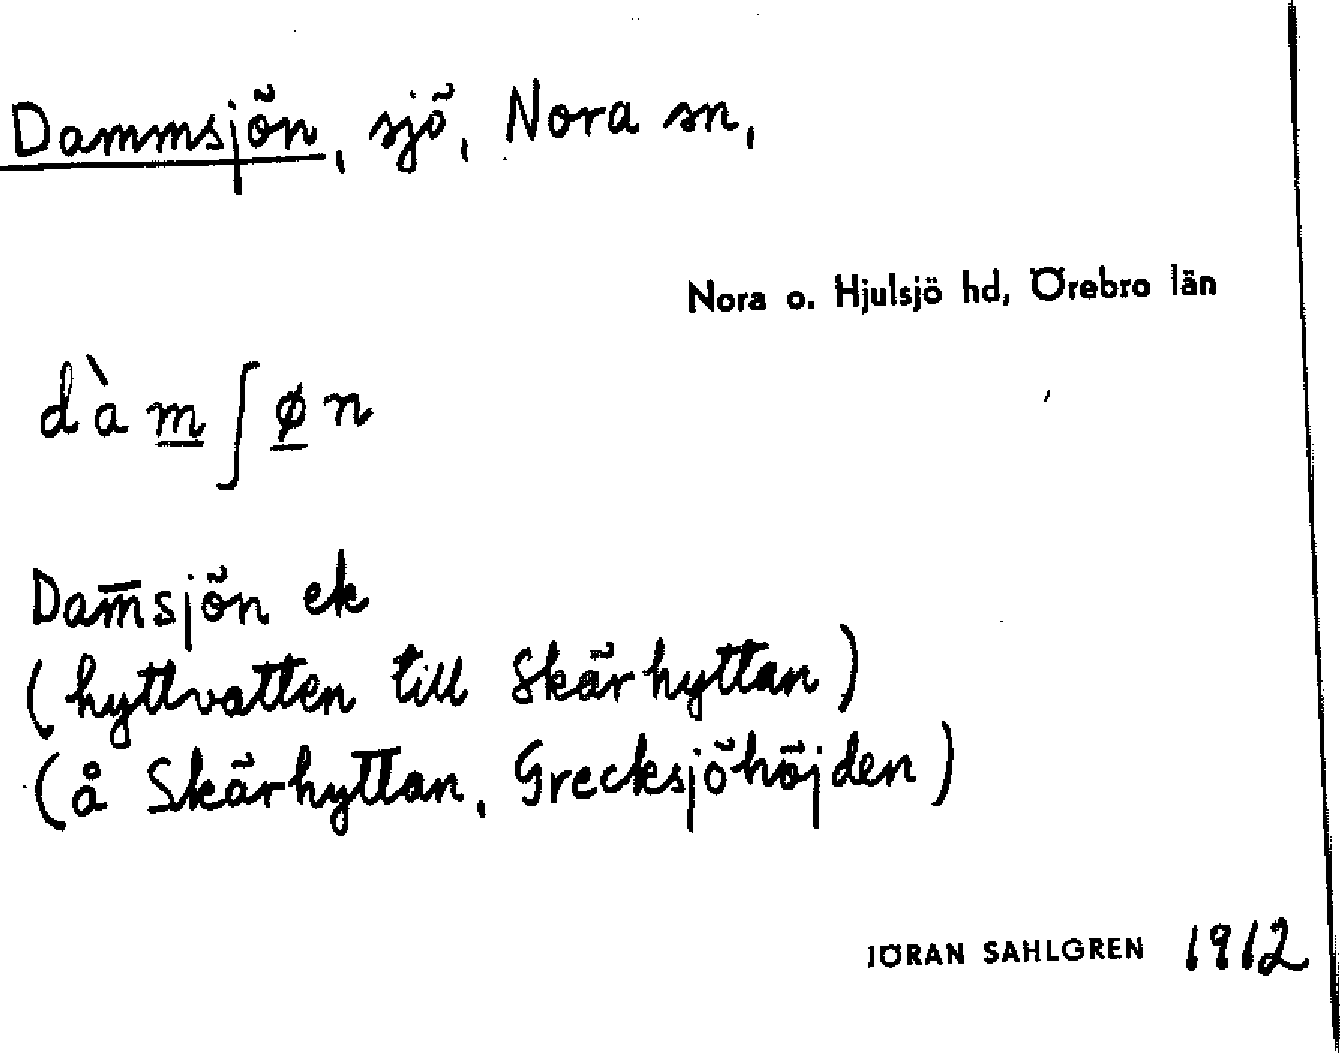 Dammsjön, sjö, Nora sn,
Nora o. Hjulsjö hd, Örebro län
dàm̲ʃø̲n
Dam̅sjön ek
(hyttvatten till Skärhyttan)
(å Skärhyttan, Grecksjöhöjden)
JÖRAN SAHLGREN 1912